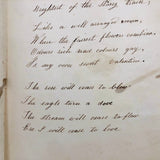 Brightest of the String train,
Like a well arrang'd crown,
Where the fairest flowers combine,
Colours rich and odours gay,
Is my own sweet Valentine.
The rose will cease to blow
The eagle turn a dove
The stream will cease to flow
Ere I will cease to love